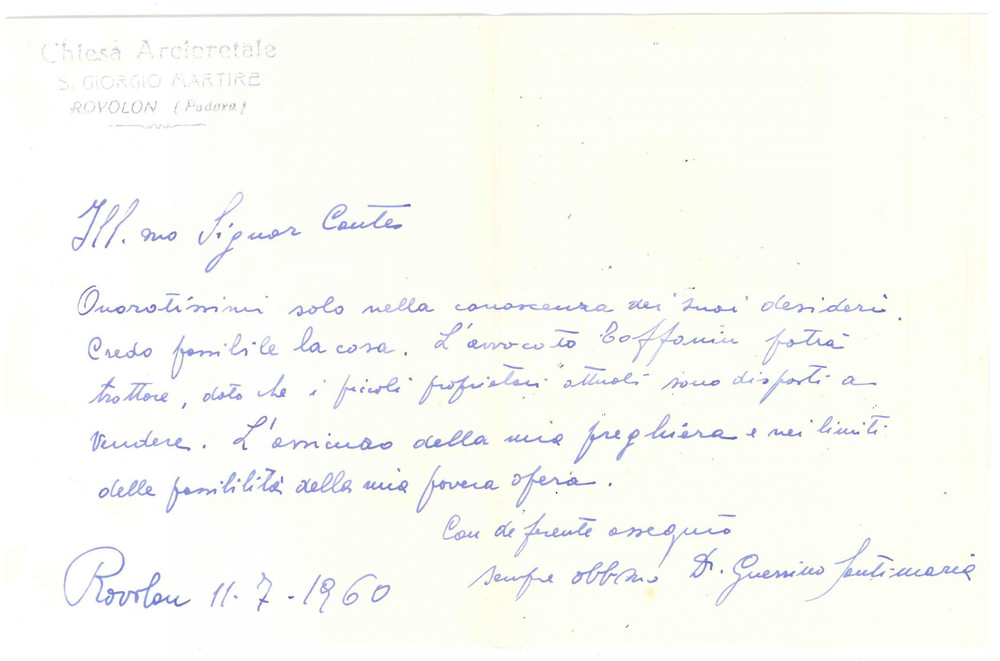 Chiesa Arcipretale
S. GIORGIO MARTIRE
ROVOLON (Padova)
Ill.mo Signor Conte
Onoratissimi solo nella conoscenza dei suoi desideri.
Credo possibile la cosa. L'avvocato Toffanin potrà
trattare, dato che i piccoli proprietari attuali sono disposti a
vendere. L'assicuro della mia preghiera e nei limiti
delle possibilità della mia povera opera.
Con deferente ossequio
sempre obbl.mo D. Guerrino Santimaria
Rovolon 11-7-1960